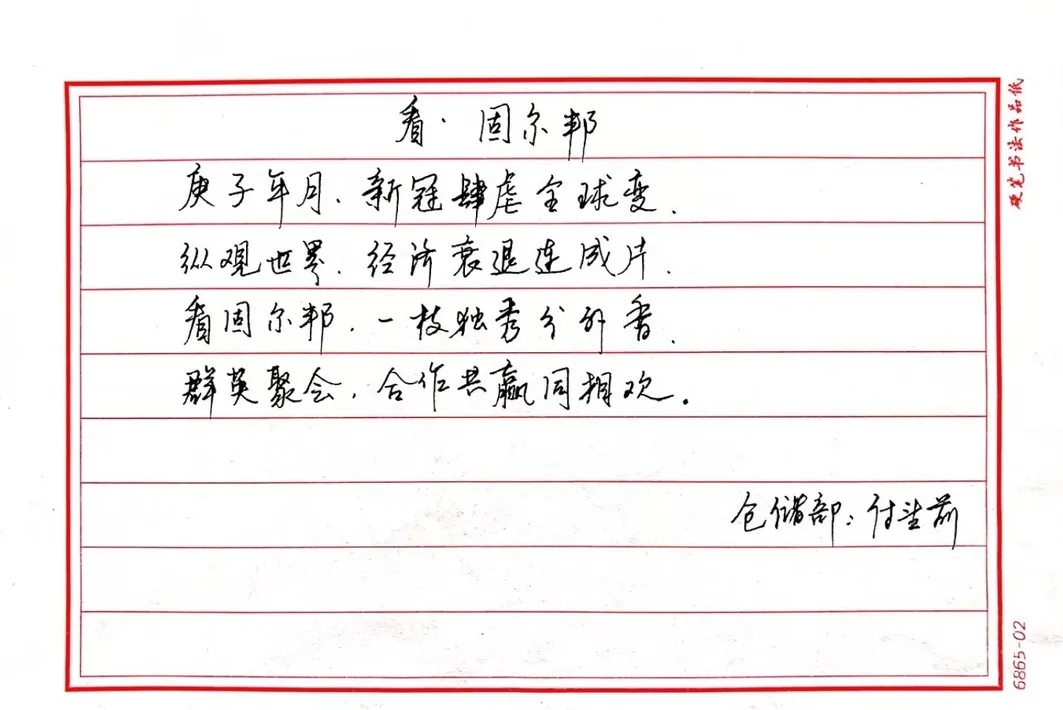 看·固尔邦
庚子年月、新冠肆虐全球变.
纵观世界.经济衰退连成片.
看固尔邦.一枝独秀分外香.
群英聚会,合作共赢同相欢。
仓储部:付
硬笔书法作品纸
6865-02